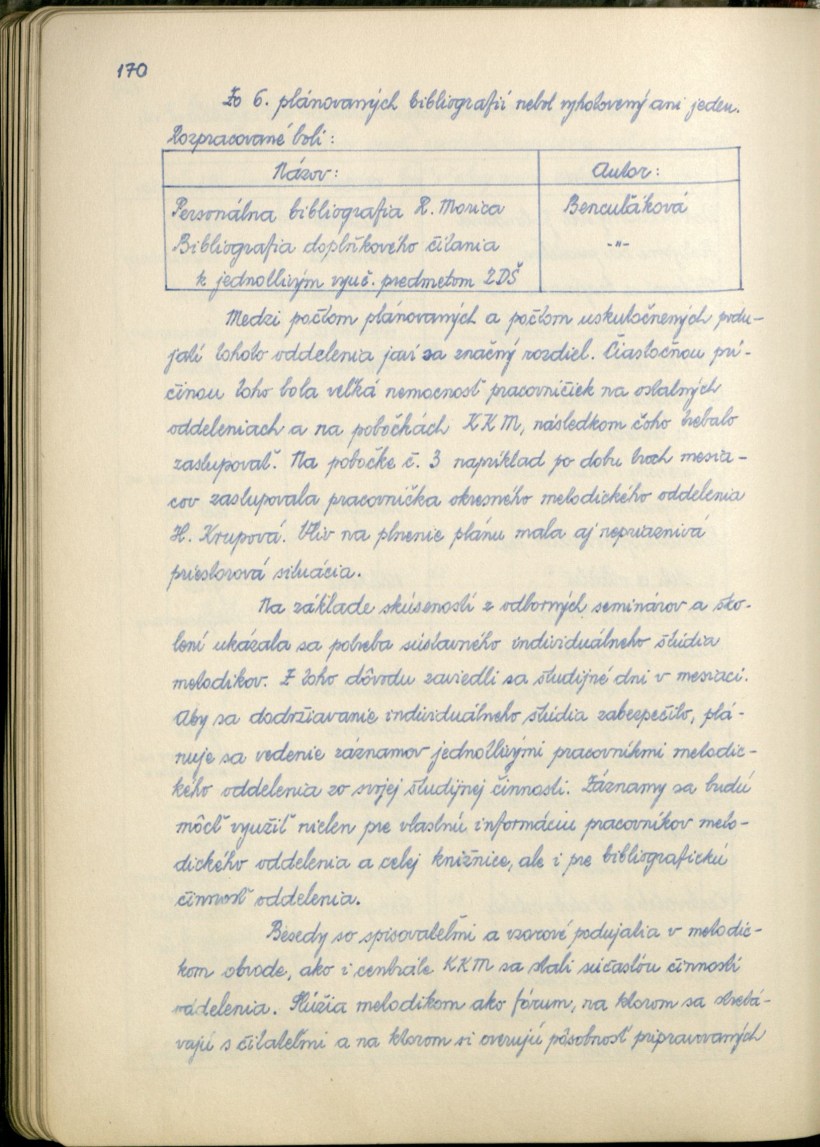 170
Zo 6. plánovaných bibliografií nebol vyhotovený ani jeden.
Rozpracované boli:
Názov: Autor:
Personálna bibliografia R. Morica Benculáková
Bibliografia doplnkového čítania -"-
k jednotlivým vyuč. predmetom ZDŠ
Medzi počtom plánovaných a počtom uskutočnených podu-
jatí tohoto oddelenia javí sa značný rozdiel. Čiastočnou prí-
činou toho bola veľká nemocnosť pracovníčiek na ostatných
oddeleniach a na pobočkách KKM, následkom čoho trebalo
zastupovať. Na pobočke č. 3 napríklad po dobu troch mesia-
cov zastupovala pracovníčka okresného metodického oddelenia
H. Krupová. Vliv na plnenie plánu mala aj nepriaznivá
priestorová situácia.
Na základe skúseností z odborných seminárov a ško-
lení ukázala sa potreba sústavného individuálneho štúdia
metodikov. Z toho dôvodu zaviedli sa študijné dni v mesiaci.
Aby sa dodržiavanie individuálneho štúdia zabezpečilo, plá-
nuje sa vedenie záznamov jednotlivými pracovníkmi metodic-
kého oddelenia zo svojej študijnej činnosti. Záznamy sa budú
môcť využiť nielen pre vlastnú informáciu pracovníkov meto-
dického oddelenia a celej knižnice, ale i pre bibliografickú
činnosť oddelenia.
Besedy so spisovateľmi a vzorové podujatia v metodic-
kom obvode, ako i centrále KKM sa stali súčasťou činnosti
oddelenia. Slúžia metodikom ako fórum, na ktorom sa stretá-
vajú s čitateľmi a na ktorom si overujú pôsobnosť pripravovaných